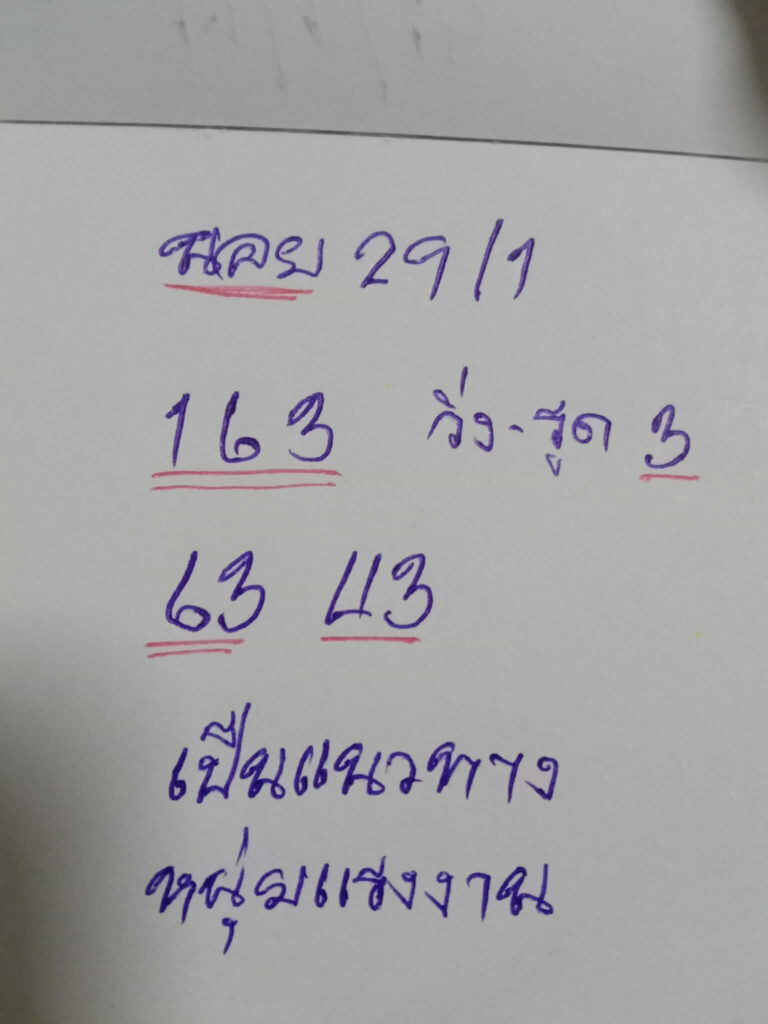 นอย 29/1
163 วิ่ง-รูด 3
63 43
เป็นแนวทาง
หนุ่มแรงงาน